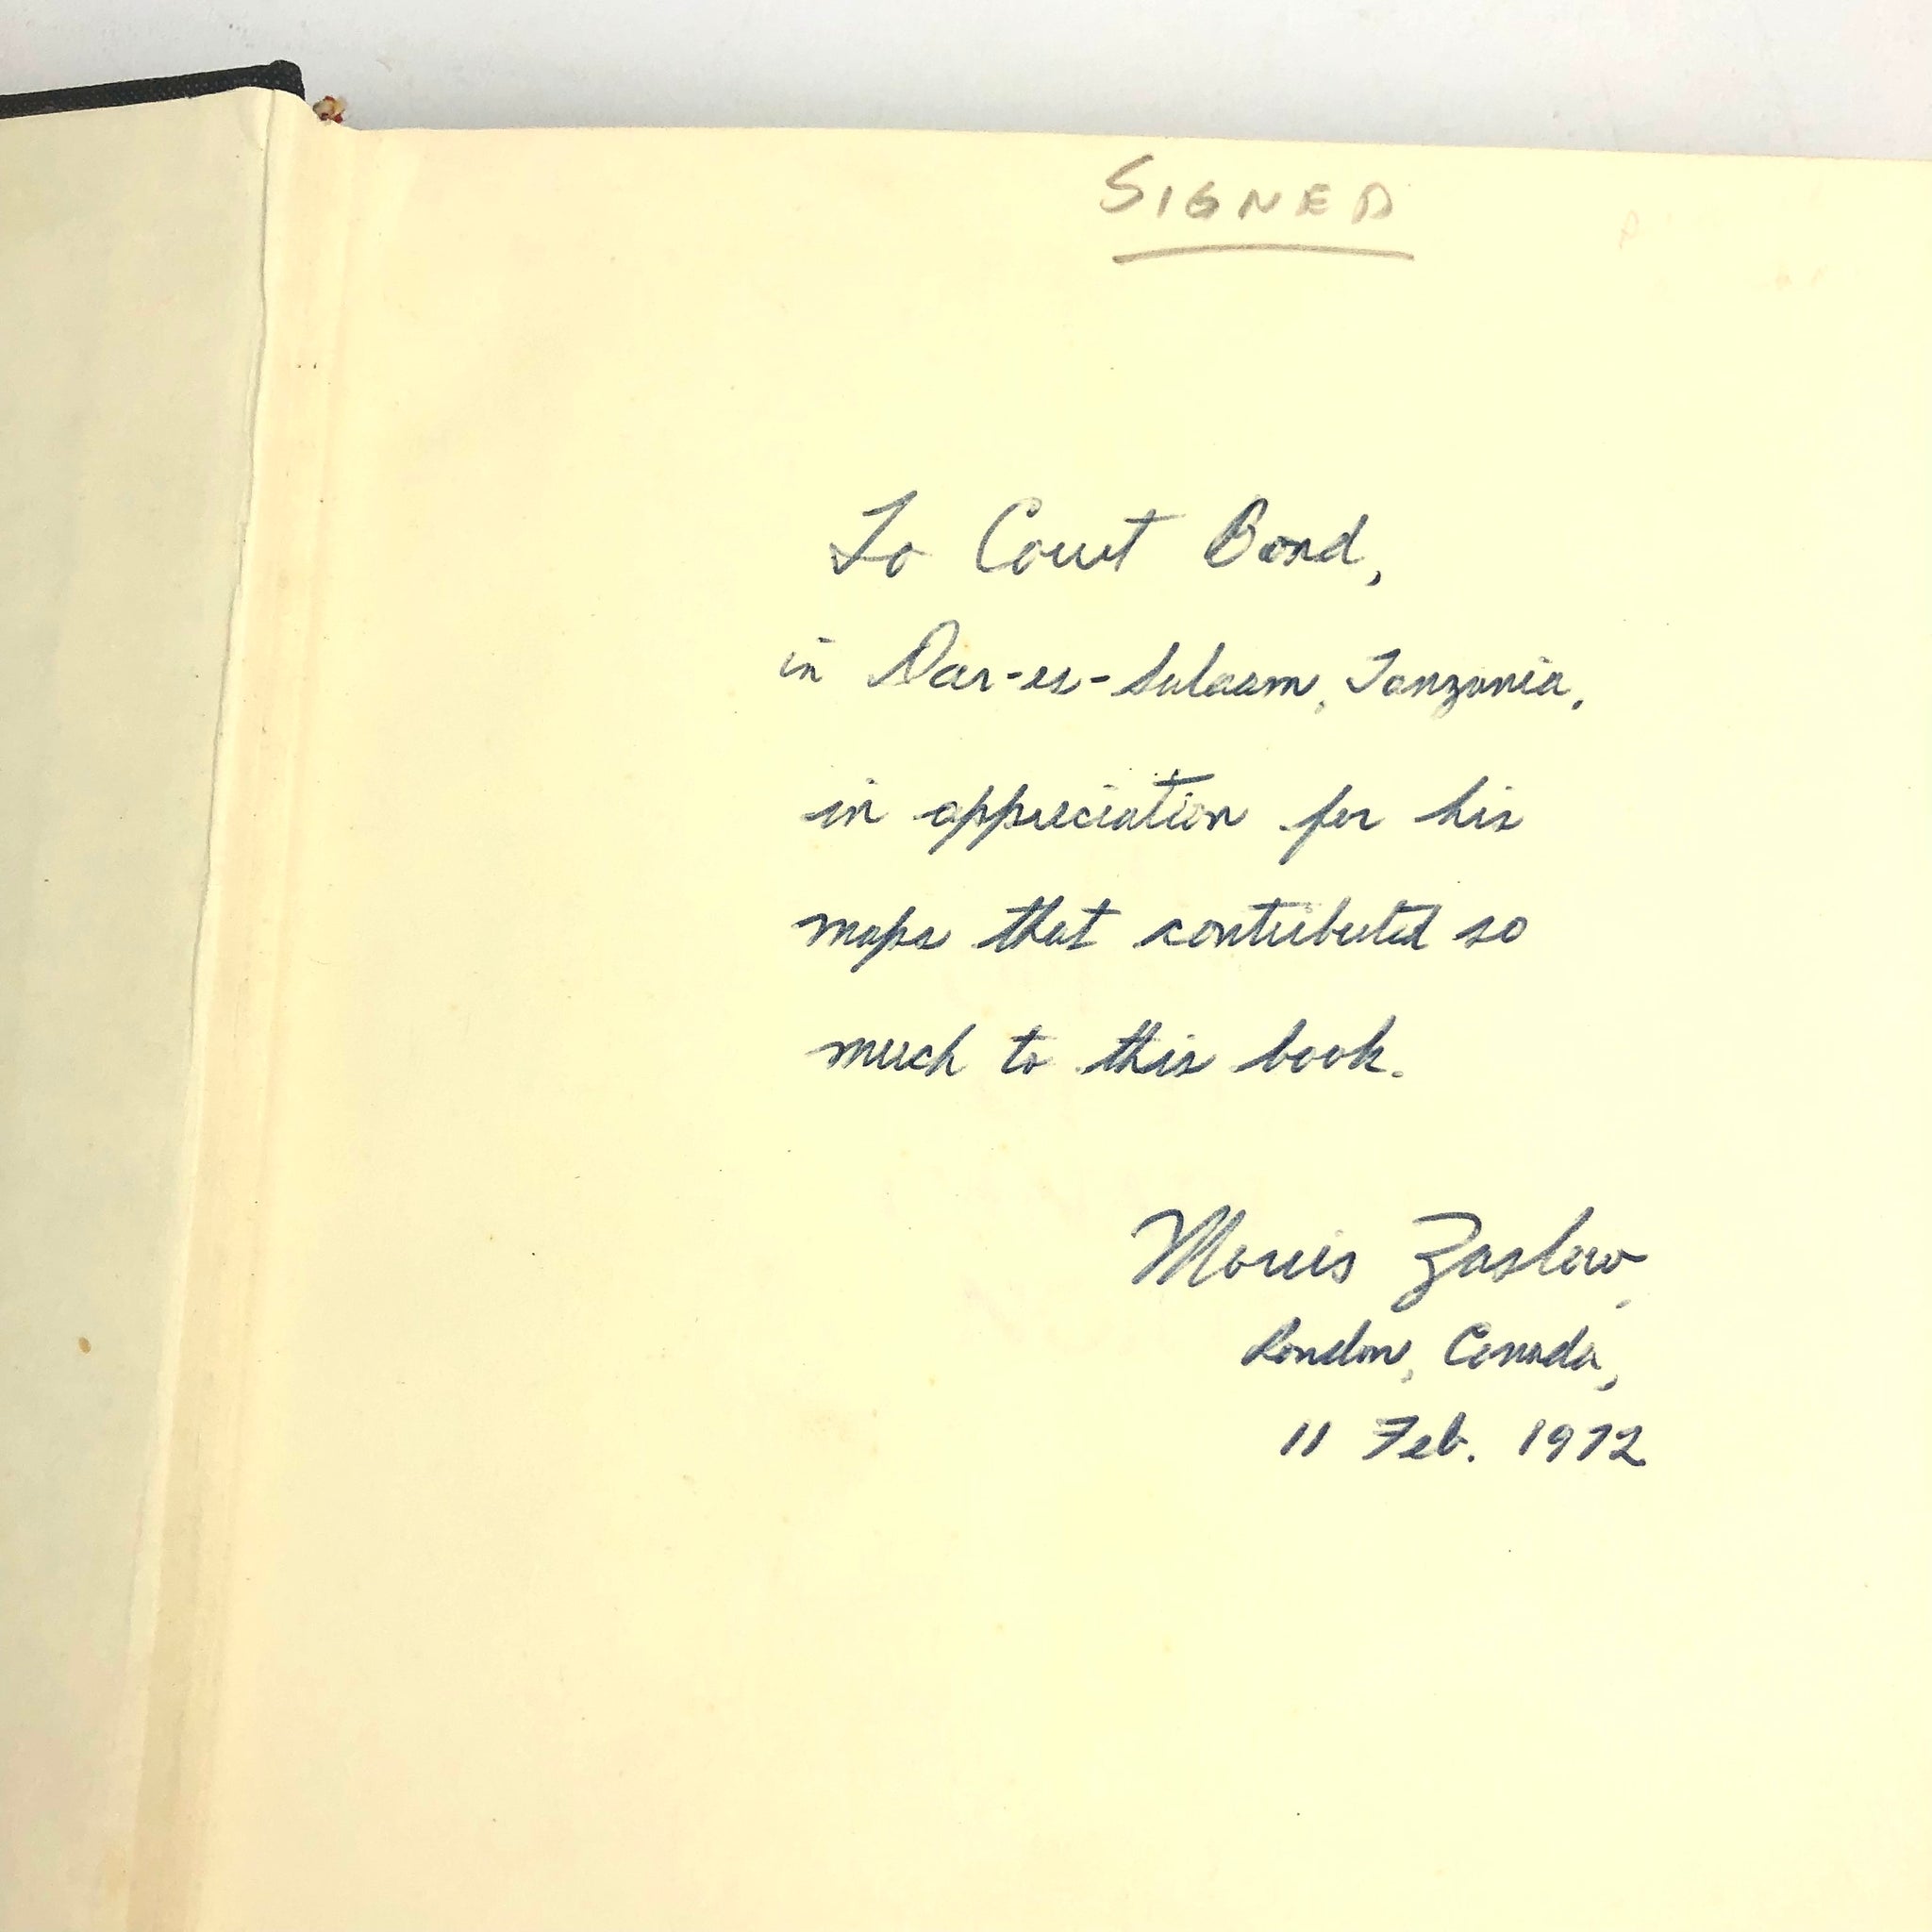 SIGNED
To Court Bond,
in Dar-es-Salaam, Tanzania,
in appreciation for his
maps that contributed so
much to this book.
Morris Zaslow,
London, Canada,
11 Feb. 1972